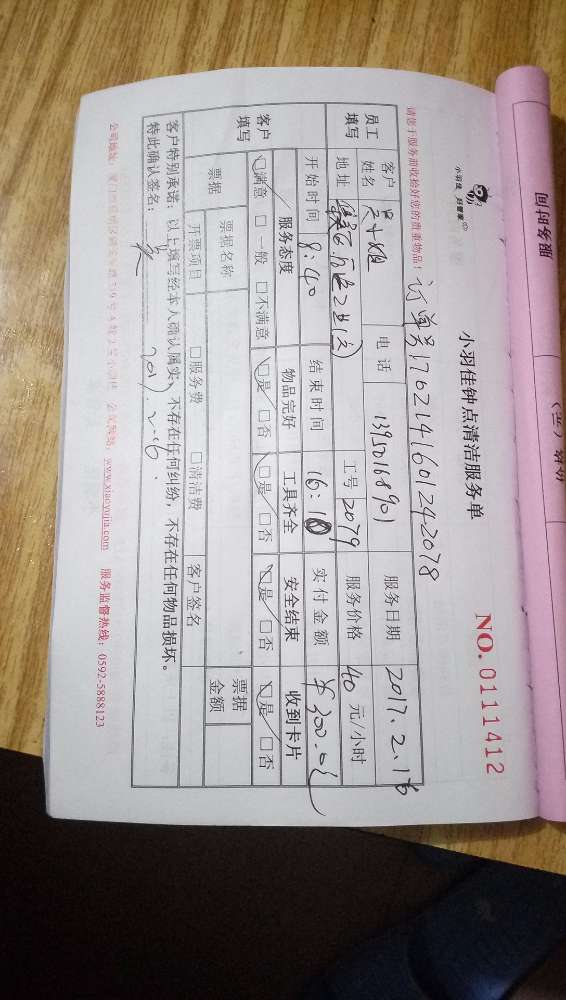 小羽佳 好管家
小羽佳钟点清洁服务单
NO. 0111412
请您于服务前收检好您的贵重物品！ 订单号1702141601242078
员工填写
客户姓名 吴小姐 电话 13950168901 服务日期 2017.2.16
地址 工号 2079 服务价格 40 元/小时
开始时间 8:40 结束时间 16:10 实付金额 ¥300.0元
客户填写
服务态度 物品完好 工具齐全 安全结束 收到卡片
□满意 □一般 □不满意 □是 □否 □是 □否 □是 □否 □是 □否
票据 票据名称 票据金额
开票项目 □服务费 □清洁费 客户签名
客户特别承诺：以上填写经本人确认属实，不存在任何纠纷，不存在任何物品损坏。
特此确认签名： 吴 2017.2.16.
公司地址： 公司网站：www.xiaoyujia.com 服务监督热线：0592-5888123
服务时间